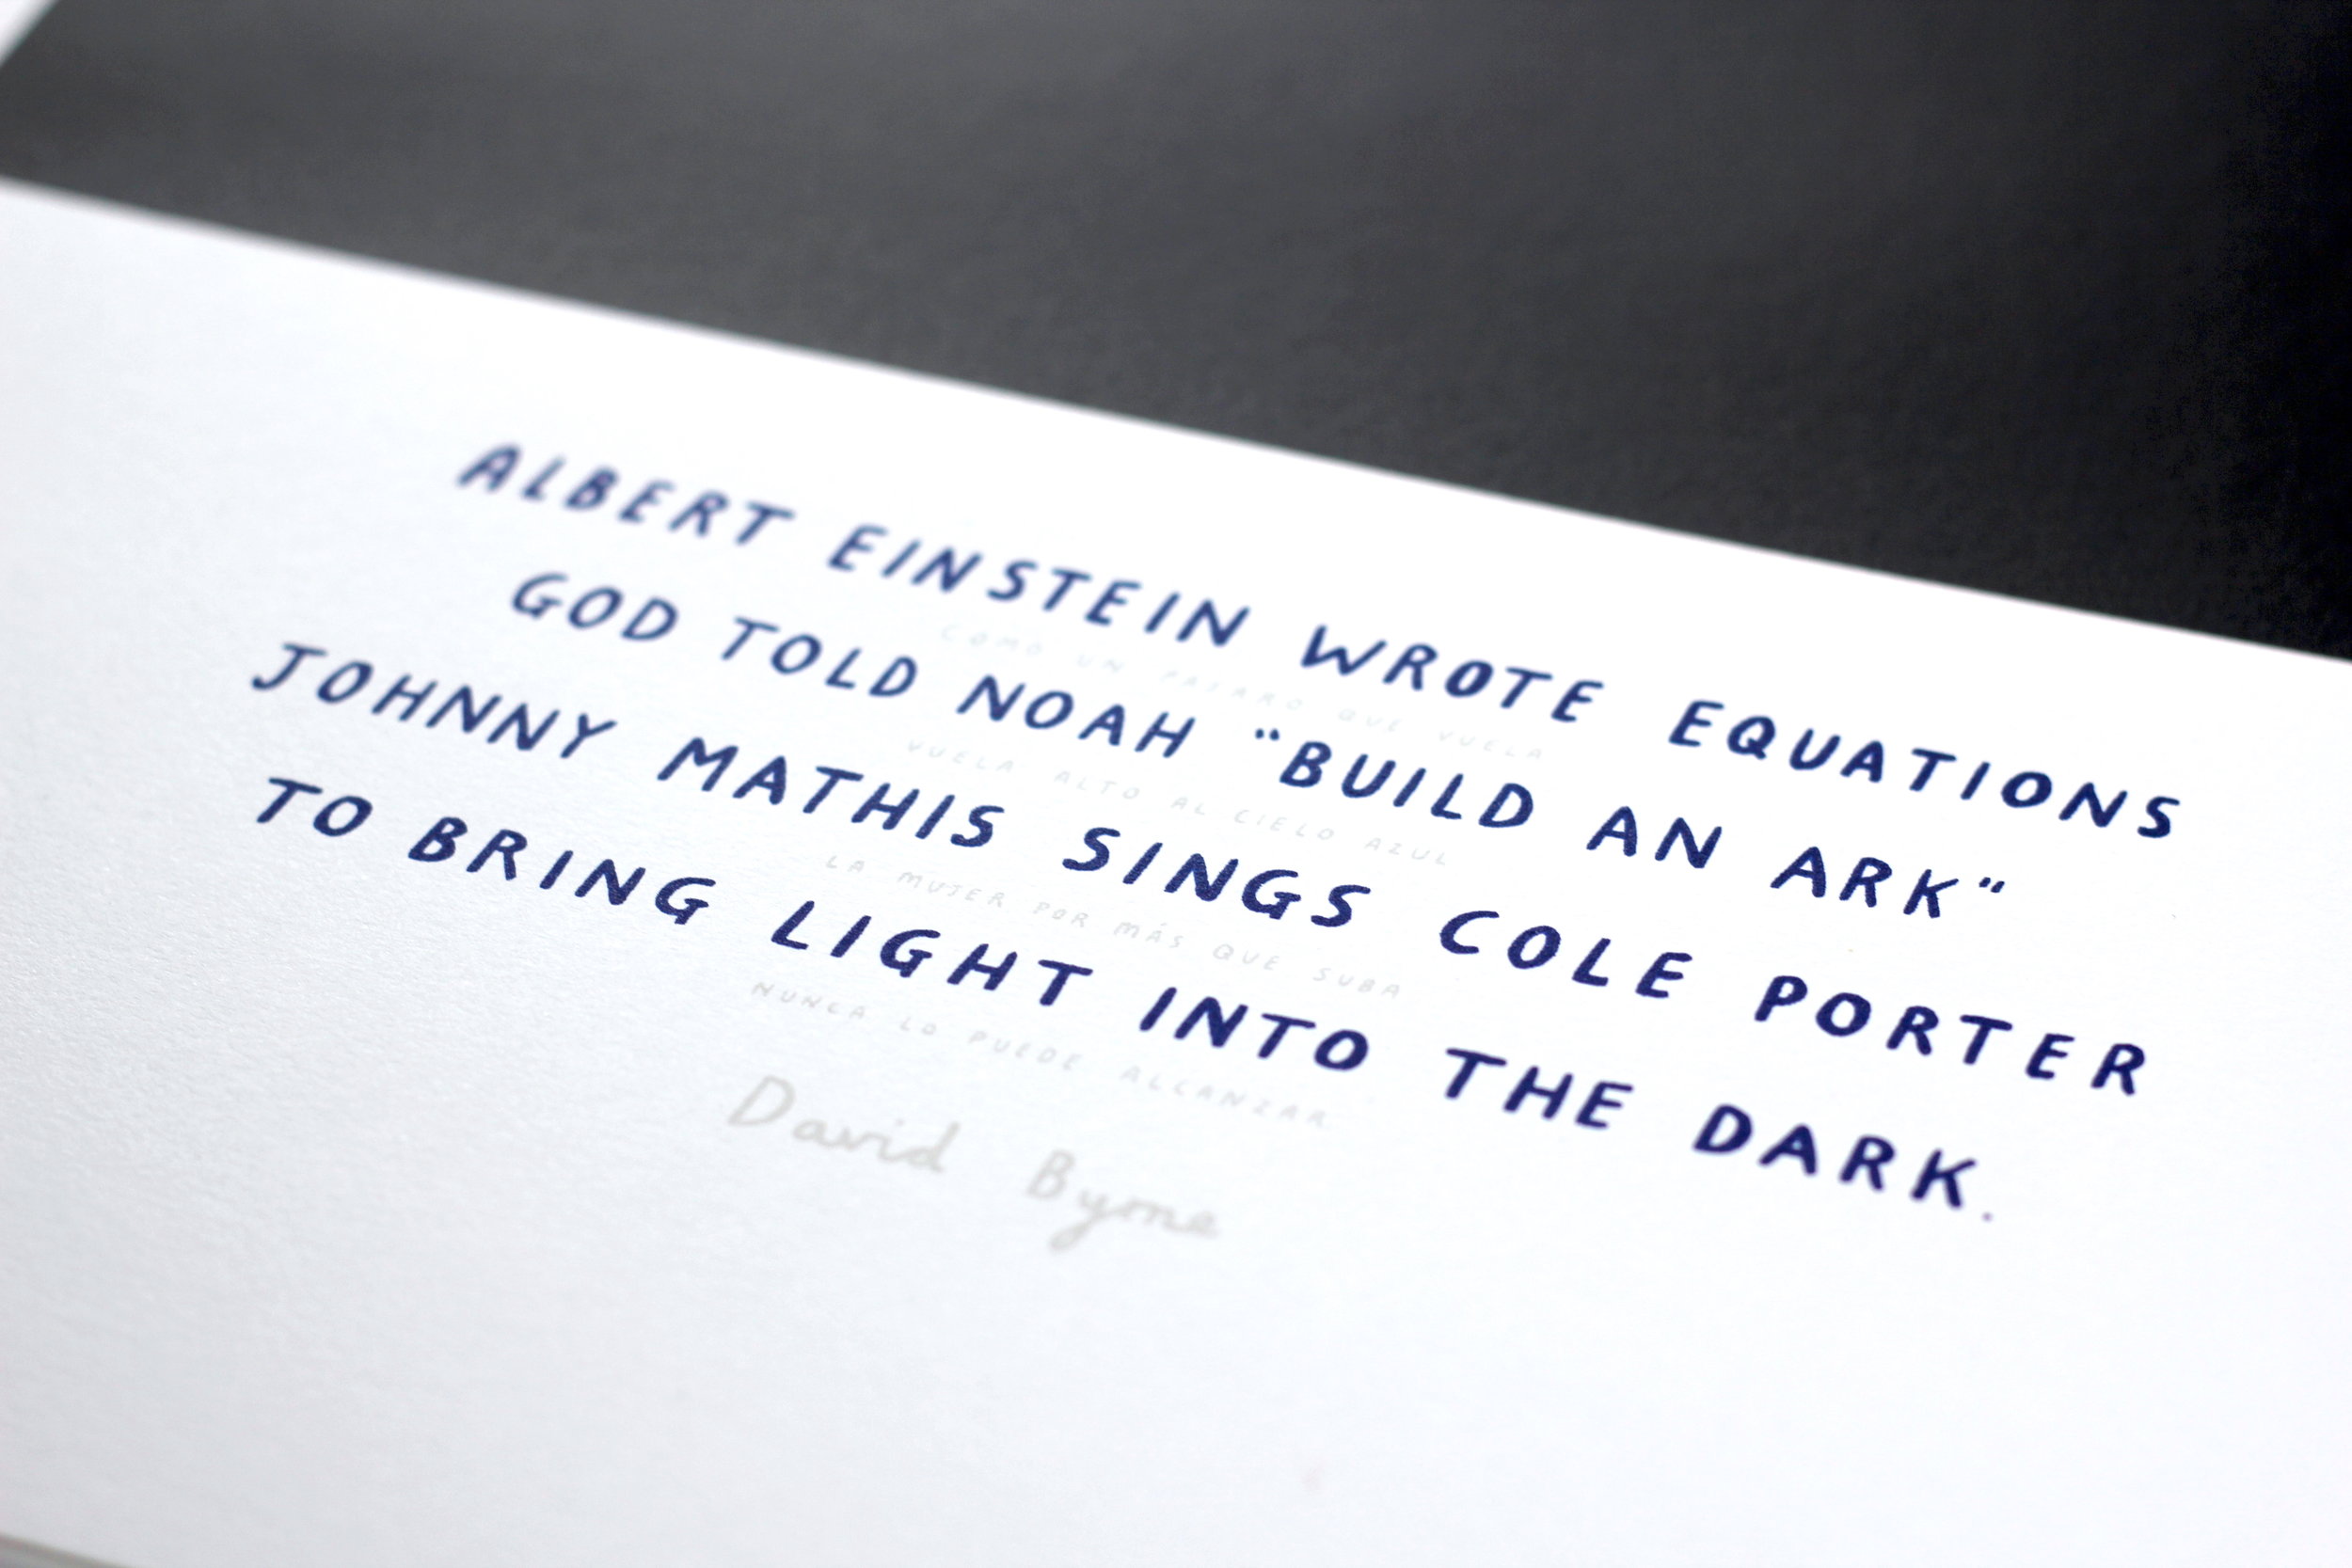 ALBERT EINSTEIN WROTE EQUATIONS
COMO UN PAJARO QUE VUELA
GOD TOLD NOAH "BUILD AN ARK"
VUELA ALTO AL CIELO AZUL
JOHNNY MATHIS SINGS COLE PORTER
LA MUJER POR MÁS QUE SUBA
TO BRING LIGHT INTO THE DARK.
NUNCA LO PUEDE ALCANZAR
David Byrne